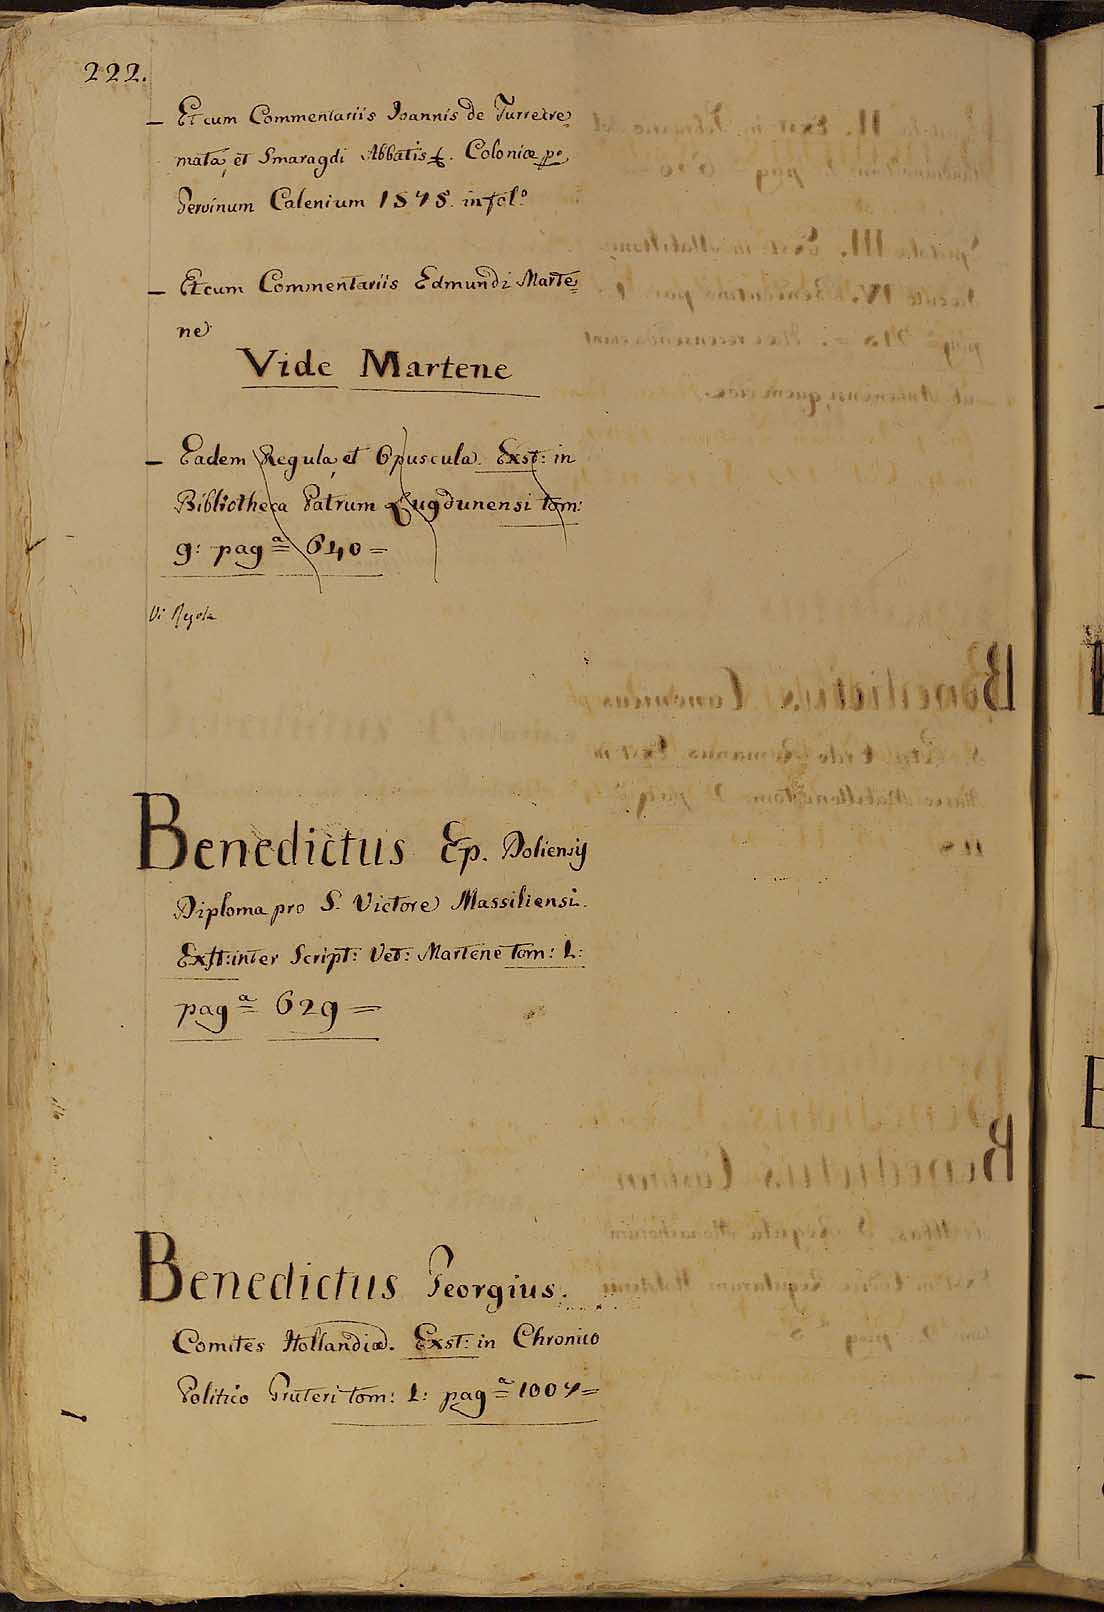 222.
– Et cum Commentariis Joannis de Turrecre=
mata, et Smaragdi Abbatis &. Coloniæ pº
Gervinum Calenium 1575. in folº
– Et cum Commentariis Edmundi Marte=
ne
Vide Martene
– Eadem Regula, et Opuscula. Exst: in
Bibliotheca Patrum Lugdunensi tom:
9: pagª 640=
Vi Regola
Benedictus Ep. Doliensis
Diploma pro S. Victore Massiliensi.
Exst: inter Script: Vet: Martene tom: 1:
pagª 629=
Benedictus Georgius.
Comites Hollandiæ. Exst: in Chronico
Politico Gruteri tom: 1: pagª 1007=